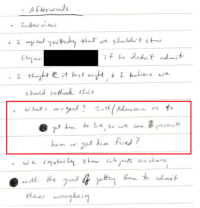 • Afterwards
• Interview
• I agreed yesterday that we shouldn't show
Flynn if he didn't admit
• I thought @ it last night, & I believe we
should rethink this
• What's our goal? Truth/Admission or to
get him to lie, so we can prosecute
him or get him fired?
• We regularly show subjects evidence
with the goal of getting them to admit
their wrongdoing